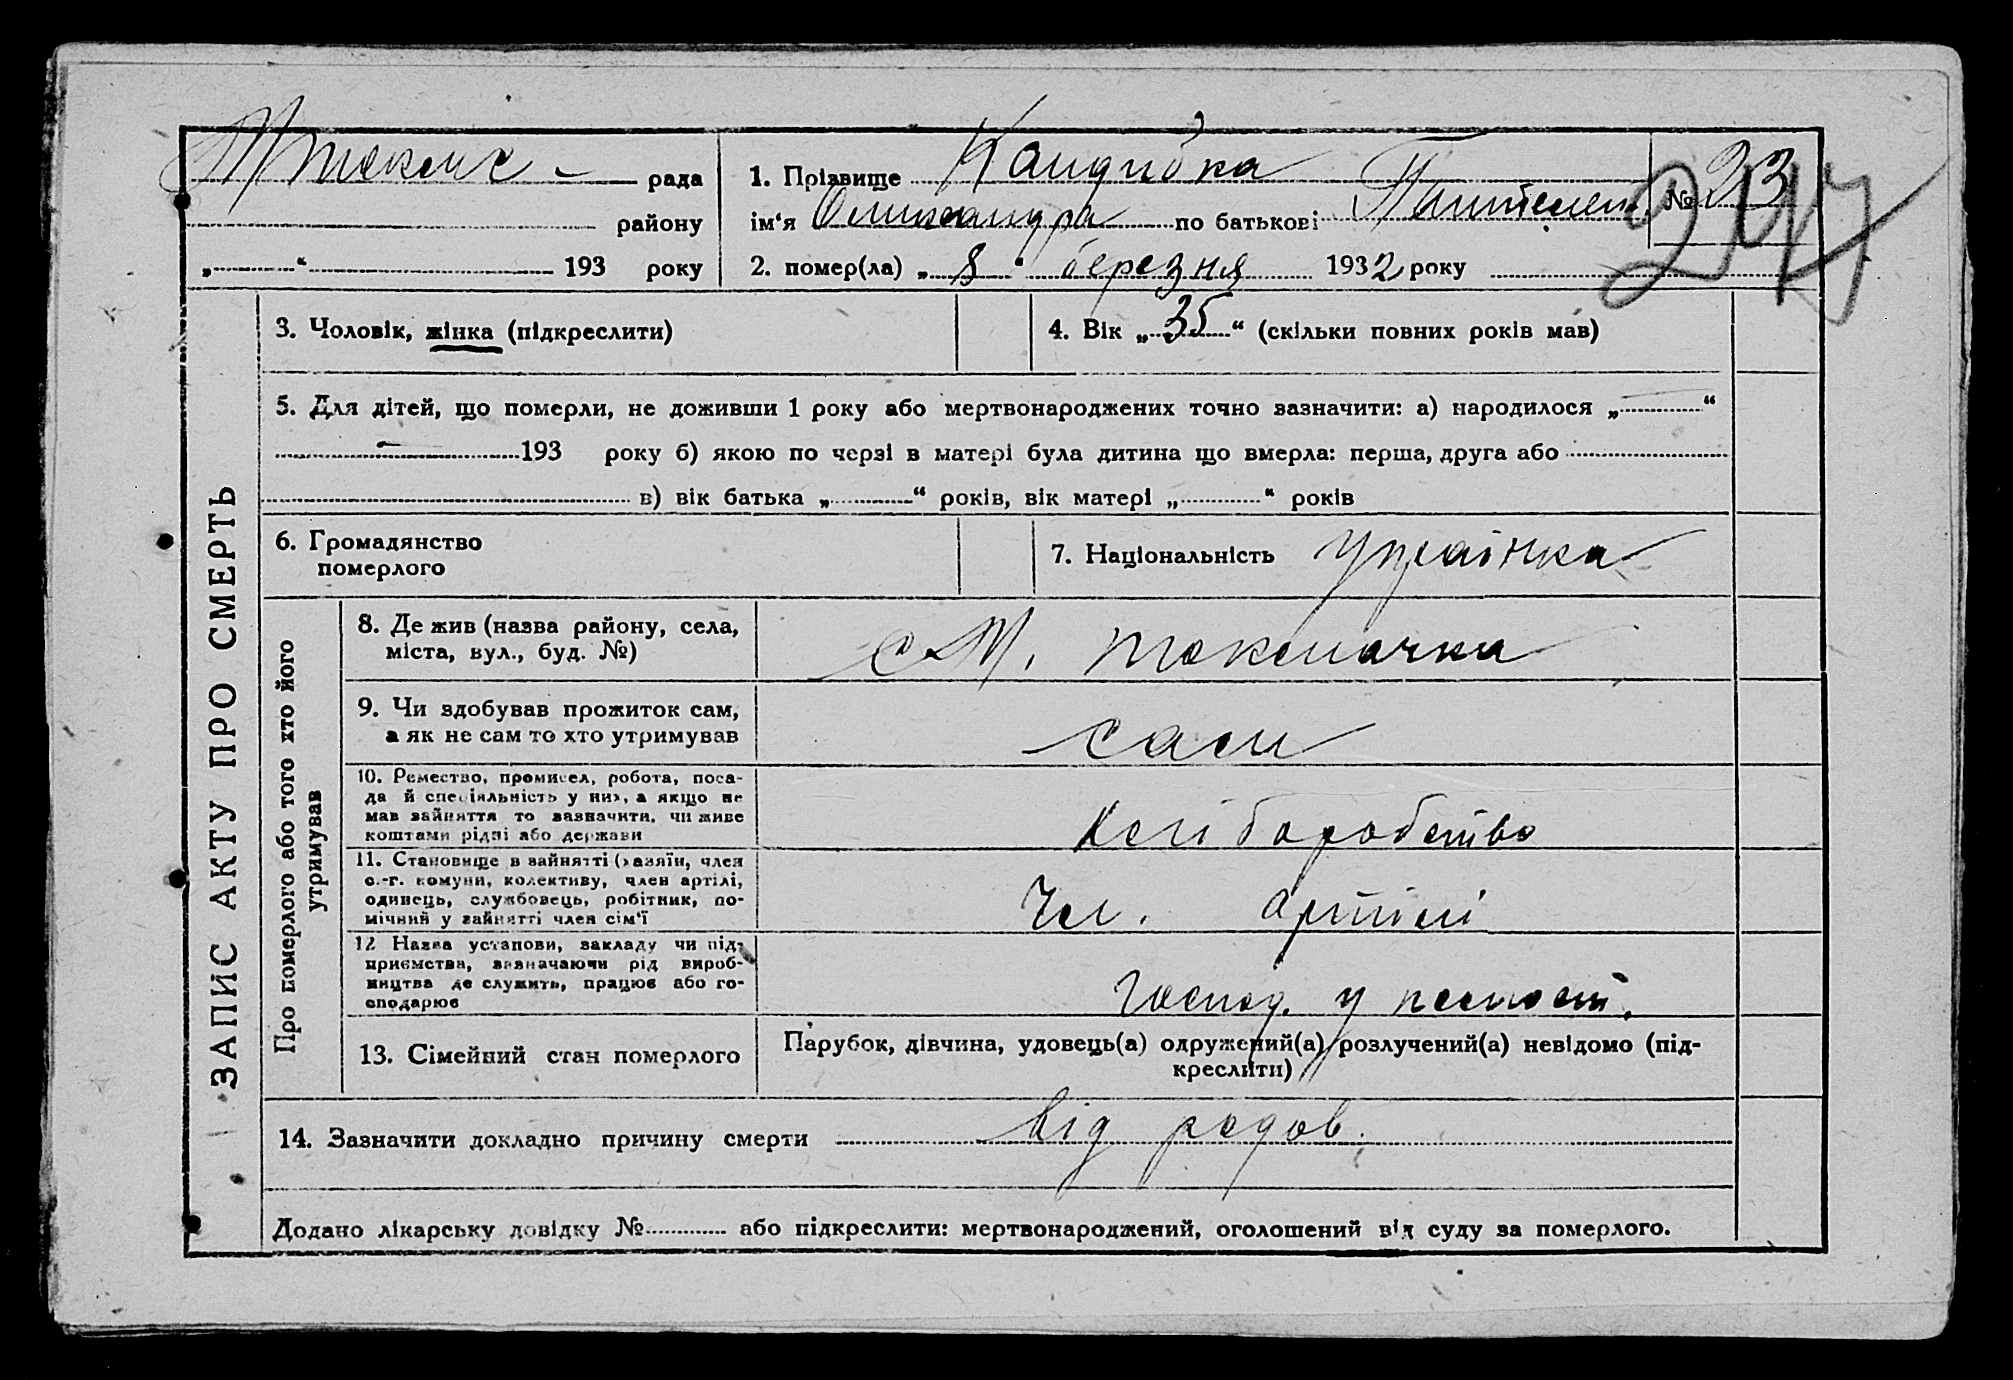 рада
1. Прізвище Кандибка
№ 23
247
району
ім‘я Олександра по батькові Пантелем.
„ “ 193 року
2. помер(ла) „ 8 “ березня 1932 року
3. Чоловік, жінка (підкреслити)
4. Вік „ 35 “ (скільки повних років мав)
5. Для дітей, що померли, не доживши 1 року або мертвонароджених точно зазначити: а) народилося „ “
193 року б) якою по черзі в матері була дитина що вмерла: перша, друга або
в) вік батька „ “ років, вік матері „ “ років
ЗАПИС АКТУ ПРО СМЕРТЬ
6. Громадянство
померлого
7. Національність Українка
Про померлого або того хто його
утримував
8. Де жив (назва району, села,
міста, вул., буд. №)
с М. Токмачка
9. Чи здобував прожиток сам,
а як не сам то хто утримував
сам
10. Ремество, промисел, робота, поса-
да й спеціяльність у них, а якщо не
мав зайняття то зазначити, чи живе
коштами рідні або держави
хліборобство
11. Становище в зайнятті (хазяїн, член
с.-г. комуни, колективу, член артілі,
одинець, службовець, робітник, по-
мічний у зайнятті член сім‘ї
Чл. артілі
12 Назва установи, закладу чи під-
приємства, зазначаючи рід вироб-
ництва де служить, працює або го-
сподарює
Господ.
13. Сімейний стан померлого
Парубок, дівчина, удовець(а) одружений(а) розлучений(а) невідомо (під-
креслити)
14. Зазначити докладно причину смерти від родов.
Додано лікарську довідку № або підкреслити: мертвонароджений, оголошений від суду за померлого.